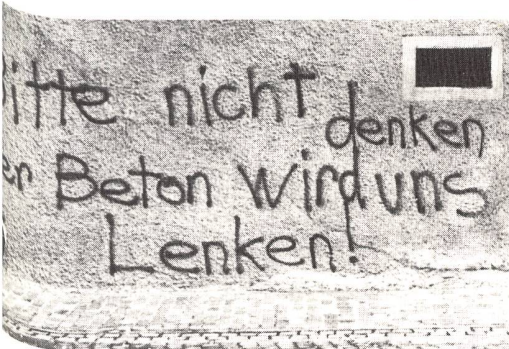 Bitte nicht denken
er Beton wird uns
Lenken!